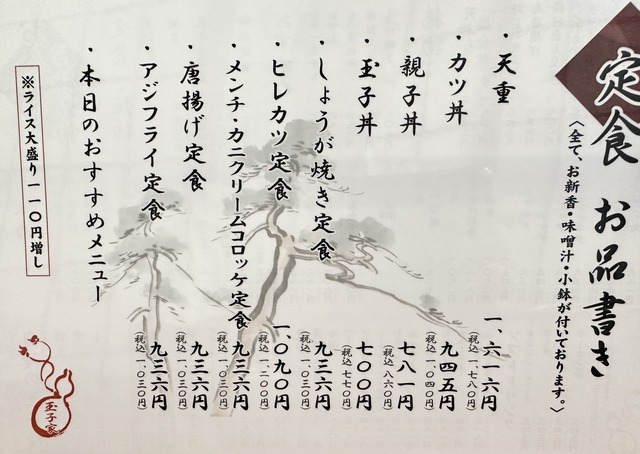 定食 お品書き
〈全て、お新香・味噌汁・小鉢が付いております。〉
・天重 一、六一六円
(税込一、七八〇円)
・カツ丼 九四五円
(税込一、〇四〇円)
・親子丼 七八一円
(税込八六〇円)
・玉子丼 七〇〇円
(税込七七〇円)
・しょうが焼き定食 九三六円
(税込一、〇三〇円)
・ヒレカツ定食 一、〇九〇円
(税込一、二〇〇円)
・メンチ・カニクリームコロッケ定食 九三六円
(税込一、〇三〇円)
・唐揚げ定食 九三六円
(税込一、〇三〇円)
・アジフライ定食 九三六円
(税込一、〇三〇円)
・本日のおすすめメニュー
※ライス大盛り一一〇円増し
玉子家